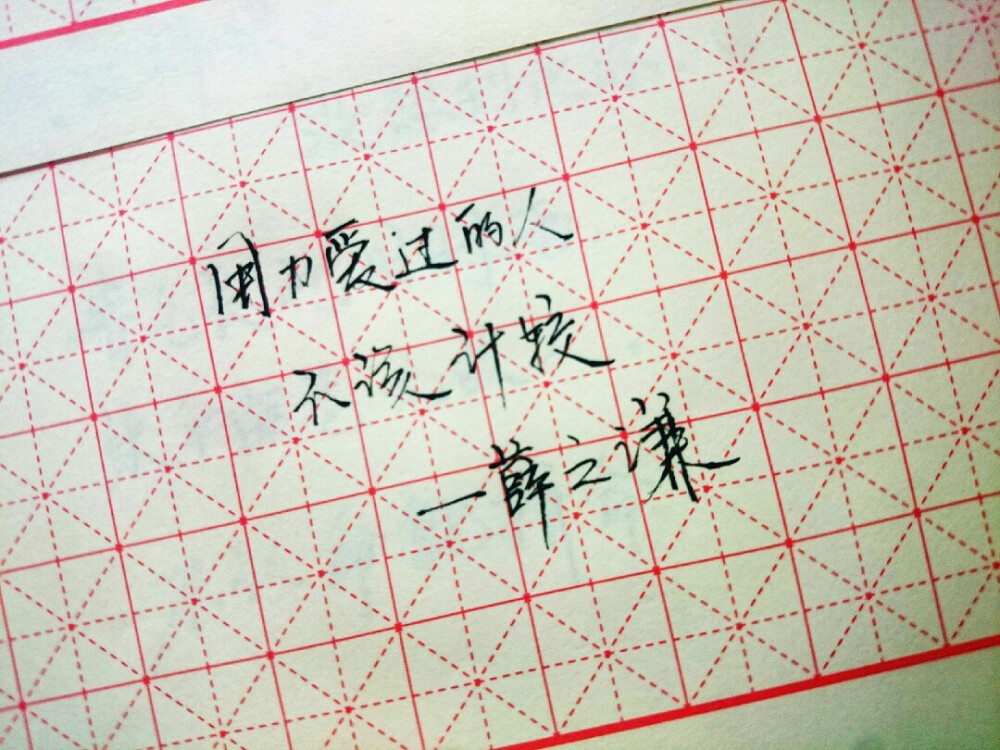 用力爱过的人
不该计较
—薛之谦